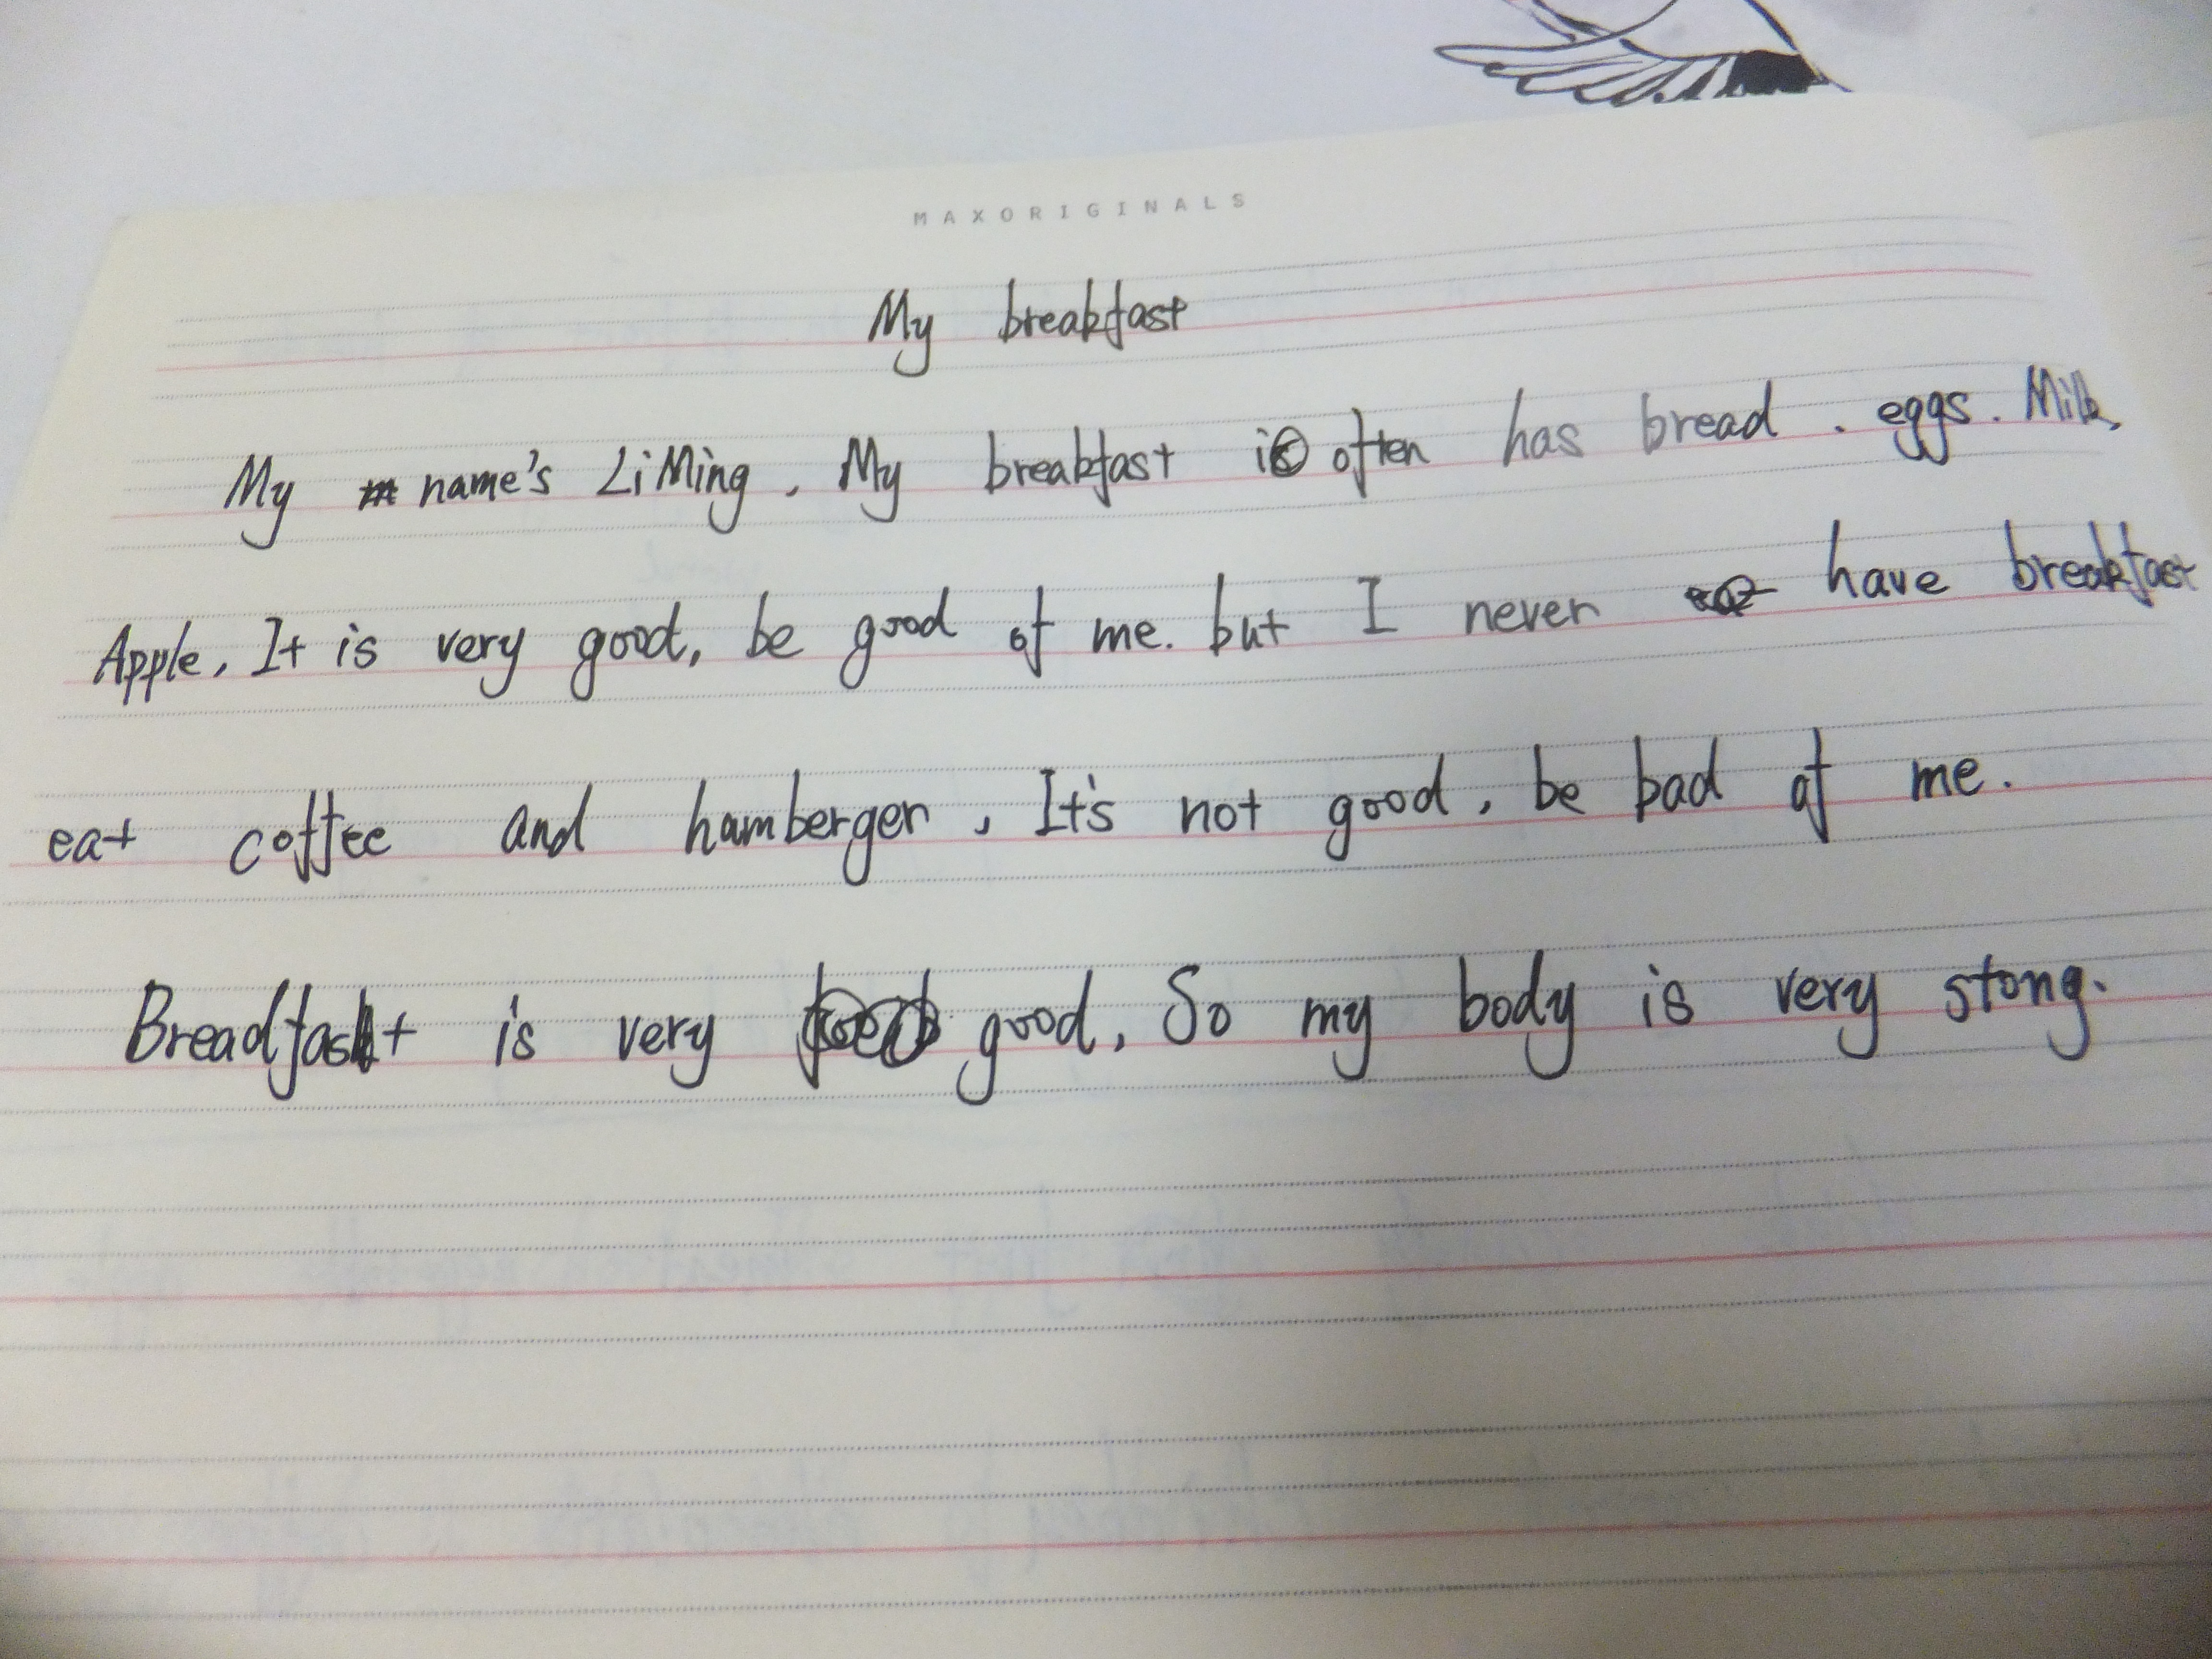 MAXORIGINALS
My breakfast
My name's LiMing. My breakfast is often has bread. eggs. Milk,
Apple. It is very good, be good of me. but I never have breakfast
eat coffee and hamberger, It's not good, be bad of me.
Breadfast is very good, So my body is very stong.